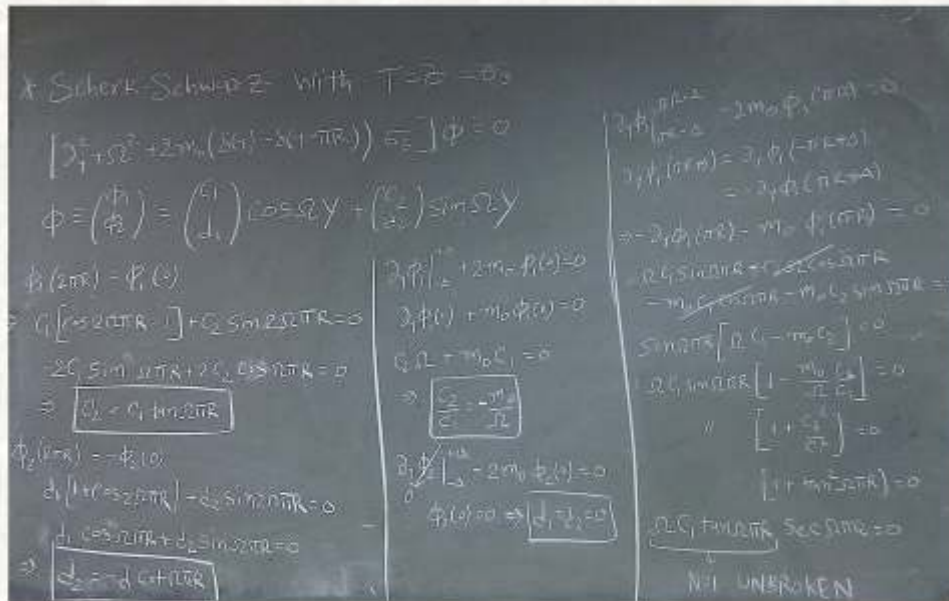 * Scherk-Schwarz with T=σ=σ₃
[∂_y² + Ω² + 2m₀(δ(y) - δ(y-πR)) σ₃] ϕ = 0
ϕ = (ϕ₁ ϕ₂) = (c₁ d₁) cosΩY + (c₂ d₂) sinΩY
ϕ₁(2πR) = ϕ₁(0)
c₁[cos2ΩπR - 1] + c₂ sin2ΩπR = 0
-2c₁ sin²ΩπR + 2c₂ ΩπR = 0
⇒ c₂ = c₁ tanΩπR
ϕ₂(2πR) = -ϕ₂(0)
d₁[1+cos2ΩπR] + d₂ sin2ΩπR = 0
d₁ cosΩπR + d₂ sinΩπR = 0
⇒ d₂ = -d₁ cotΩπR
+ 2m₀ ϕ₁(0) = 0
∂_yϕ(0) + m₀ϕ₁(0) = 0
c₂Ω + m₀c₁ = 0
⇒ c₂/c₁ = -m₀/Ω
- 2m₀ ϕ₂(0) = 0
ϕ₂(0) = 0 ⇒ d₁ = d₂ = 0
- 2m₀ ϕ₁(πR) = 0
∂_yϕ₁(πR+Δ) = ∂_yϕ₁(-πR+Δ)
= -∂_yϕ₁(πR+Δ)
⇒ -∂_yϕ₁(πR) - m₀ ϕ₁(πR) = 0
Ωc₁ sinΩπR - c₂Ω cosΩπR
- m₀c₁ cosΩπR - m₀c₂ sinΩπR =
sinΩπR[Ωc₁ - m₀c₂] = 0
Ωc₁ sinΩπR[1 - m₀/Ω c₂/c₁] = 0
" [1 + c₂²/c₁²] = 0
[1 + tan²ΩπR] = 0
Ωc₁ tanΩπR secΩπR = 0
N=1 UNBROKEN